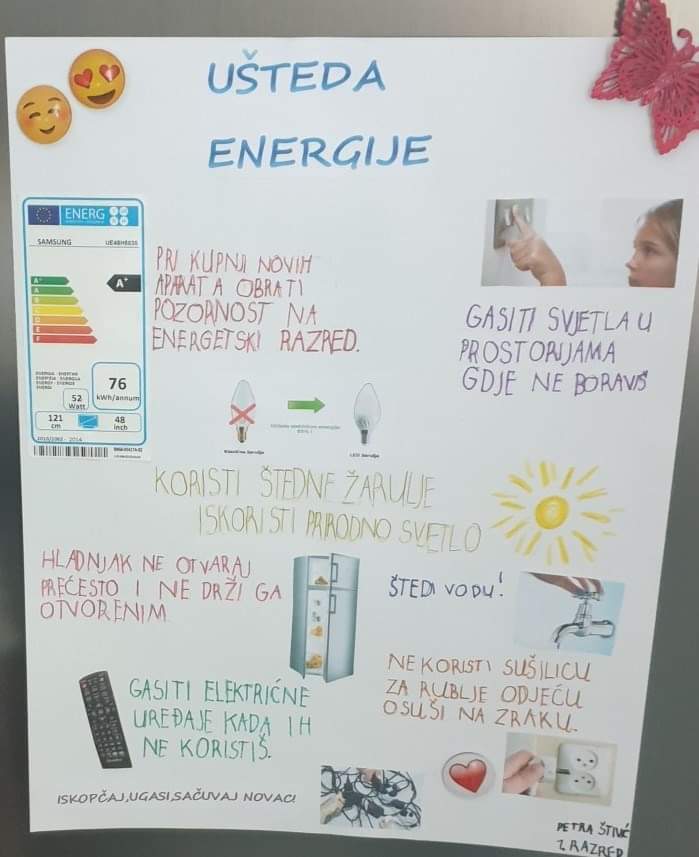 UŠTEDA
ENERGIJE
ENERG
SAMSUNG UE48H6636
PRI KUPNJI NOVIH
APARATA OBRATI
POZORNOST NA
ENERGETSKI RAZRED.
A+
A
B
C
D
E
F
A+
76
kWh/annum
52
Watt
121
cm
48
inch
GASITI SVJETLA U
PROSTORIJAMA
GDJE NE BORAVIŠ
Klasična žarulja
LED žarulja
KORISTI ŠTEDNE ŽARULJE
ISKORISTI PRIRODNO SVETLO
HLADNJAK NE OTVARAJ
PREČESTO I NE DRŽI GA
OTVORENIM
ŠTEDI VODU!
NE KORISTI SUŠILICU
ZA RUBLJE ODJEĆU
OSUŠI NA ZRAKU.
GASITI ELEKTRIČNE
UREĐAJE KADA IH
NE KORISTIŠ.
ISKOPČAJ,UGASI,SAČUVAJ NOVAC!
PETRA ŠTIVIĆ
7. RAZRED